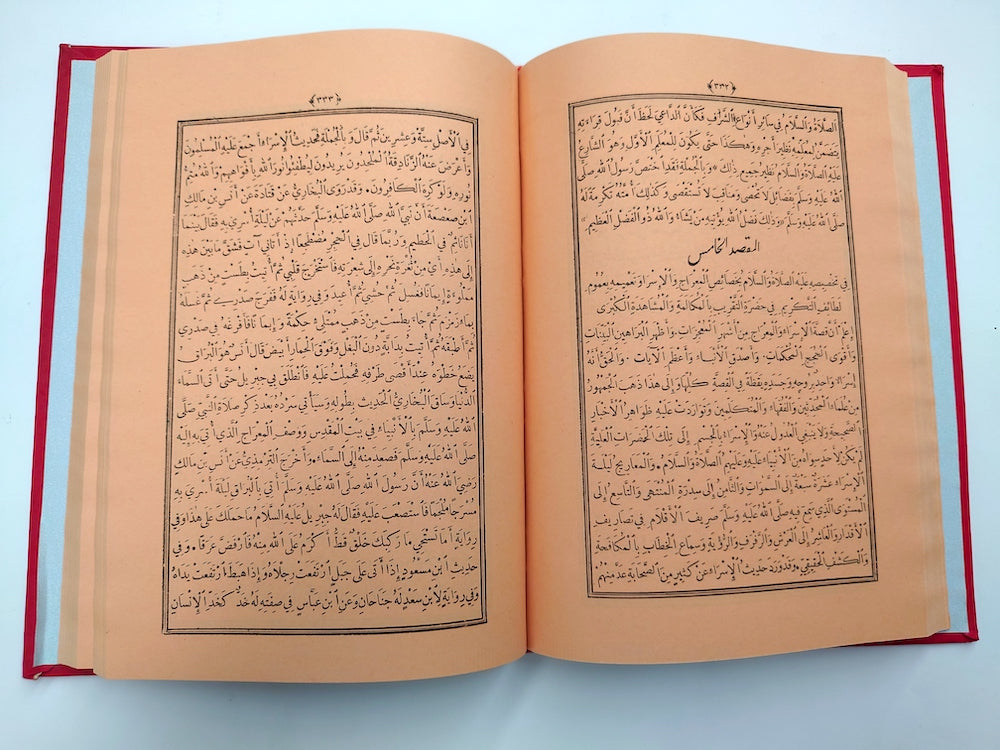 ﴿٣٣٢﴾
الصَّلَاةُ وَالسَّلَامُ فِي سَائِرِ أَنْوَاعِ الشَّرَفِ فَكَأَنَّ الدَّاعِيَ لَحَظَ أَنَّ قَبُولَ قِرَاءَتِهِ
يَتَضَمَّنُ لِمُعَلِّمِهِ نَظِيرَ أَجْرِهِ وَهٰكَذَا حَتَّى يَكُونَ لِلْمُعَلِّمِ الْأَوَّلِ وَهُوَ الشَّارِعُ
عَلَيْهِ الصَّلَاةُ وَالسَّلَامُ نَظِيرُ جَمِيعِ ذٰلِكَ ۞ وَبِالْجُمْلَةِ فَقَدِ اخْتَصَّ رَسُولُ اللهِ صَلَّى
اللهُ عَلَيْهِ وَسَلَّمَ بِفَضَائِلَ لَا تُحْصَى وَمَنَاقِبَ لَا تُسْتَقْصَى وَكَذٰلِكَ أُمَّتُهُ تَكْرِمَةً لَهُ
صَلَّى اللهُ عَلَيْهِ وَسَلَّمَ ۞ وَذٰلِكَ فَضْلُ اللهِ يُؤْتِيهِ مَنْ يَشَاءُ وَاللهُ ذُو الْفَضْلِ الْعَظِيمِ ۞
المقصد الخامس
فِي تَخْصِيصِهِ عَلَيْهِ الصَّلَاةُ وَالسَّلَامُ بِخَصَائِصِ الْمِعْرَاجِ وَالْإِسْرَاءِ وَتَعْمِيمِهِ بِعُمُومِ
لَطَائِفِ التَّكْرِيمِ فِي حَضْرَةِ التَّقْرِيبِ بِالْمُكَالَمَةِ وَالْمُشَاهَدَةِ الْكُبْرَى
اعْلَمْ أَنَّ قِصَّةَ الْإِسْرَاءِ وَالْمِعْرَاجِ مِنْ أَشْهَرِ الْمُعْجِزَاتِ وَأَظْهَرِ الْبَرَاهِينِ الْبَيِّنَاتِ
وَأَقْوَى الْحُجَجِ الْمُحْكَمَاتِ وَأَصْدَقِ الْأَنْبَاءِ وَأَعْظَمِ الْآيَاتِ وَالْحَقُّ أَنَّهُ
إِسْرَاءٌ وَاحِدٌ بِرُوحِهِ وَجَسَدِهِ يَقَظَةً فِي الْقِصَّةِ كُلِّهَا وَإِلَى هٰذَا ذَهَبَ الْجُمْهُورُ
مِنْ عُلَمَاءِ الْمُحَدِّثِينَ وَالْفُقَهَاءِ وَالْمُتَكَلِّمِينَ وَتَوَارَدَتْ عَلَيْهِ ظَوَاهِرُ الْأَخْبَارِ
الصَّحِيحَةِ وَلَا يَنْبَغِي الْعُدُولُ عَنْهُ وَالْإِسْرَاءُ بِالْجِسْمِ إِلَى تِلْكَ الْحَضَرَاتِ الْعَلِيَّةِ
لَمْ يَكُنْ لِأَحَدٍ سِوَاهُ مِنَ الْأَنْبِيَاءِ عَلَيْهِ وَعَلَيْهِمُ الصَّلَاةُ وَالسَّلَامُ ۞ وَالْمَعَارِيجُ لَيْلَةَ
الْإِسْرَاءِ عَشَرَةٌ سَبْعَةٌ إِلَى السَّمٰوَاتِ وَالثَّامِنُ إِلَى سِدْرَةِ الْمُنْتَهَى وَالتَّاسِعُ إِلَى
الْمُسْتَوَى الَّذِي سَمِعَ فِيهِ صَلَّى اللهُ عَلَيْهِ وَسَلَّمَ صَرِيفَ الْأَقْلَامِ فِي تَصَارِيفِ
الْأَقْدَارِ وَالْعَاشِرُ إِلَى الْعَرْشِ وَالرَّفْرَفِ وَالرُّؤْيَةِ وَسَمَاعِ الْخِطَابِ بِالْمُكَافَحَةِ
وَالْكَشْفِ الْحَقِيقِيِّ ۞ وَقَدْ وَرَدَ حَدِيثُ الْإِسْرَاءِ عَنْ كَثِيرٍ مِنَ الصَّحَابَةِ عَدَّ مِنْهُمْ
﴿٣٣٣﴾
فِي الْأَصْلِ سِتَّةً وَعِشْرِينَ ثُمَّ قَالَ وَبِالْجُمْلَةِ فَحَدِيثُ الْإِسْرَاءِ أَجْمَعَ عَلَيْهِ الْمُسْلِمُونَ
وَأَعْرَضَ عَنْهُ الزَّنَادِقَةُ الْمُلْحِدُونَ يُرِيدُونَ لِيُطْفِئُوا نُورَ اللهِ بِأَفْوَاهِهِمْ وَاللهُ مُتِمُّ
نُورِهِ وَلَوْ كَرِهَ الْكَافِرُونَ ۞ وَقَدْ رَوَى الْبُخَارِيُّ عَنْ قَتَادَةَ عَنْ أَنَسِ بْنِ مَالِكٍ
ابْنِ صَعْصَعَةَ أَنَّ نَبِيَّ اللهِ صَلَّى اللهُ عَلَيْهِ وَسَلَّمَ حَدَّثَهُمْ عَنْ لَيْلَةِ أُسْرِيَ بِهِ فَقَالَ بَيْنَمَا
أَنَا نَائِمٌ فِي الْحَطِيمِ وَرُبَّمَا قَالَ فِي الْحِجْرِ مُضْطَجِعًا إِذْ أَتَانِي آتٍ فَشَقَّ مَا بَيْنَ هٰذِهِ
إِلَى هٰذِهِ أَيْ مِنْ ثُغْرَةِ نَحْرِهِ إِلَى شِعْرَتِهِ فَاسْتَخْرَجَ قَلْبِي ثُمَّ أُتِيتُ بِطَسْتٍ مِنْ ذَهَبٍ
مَمْلُوءَةٍ إِيمَانًا فَغُسِلَ ثُمَّ حُشِيَ ثُمَّ أُعِيدَ وَفِي رِوَايَةٍ لَهُ فَفَرَجَ صَدْرِي ثُمَّ غَسَلَهُ
بِمَاءِ زَمْزَمَ ثُمَّ جَاءَ بِطَسْتٍ مِنْ ذَهَبٍ مُمْتَلِئٍ حِكْمَةً وَإِيمَانًا فَأَفْرَغَهُ فِي صَدْرِي
ثُمَّ أَطْبَقَهُ ثُمَّ أُتِيتُ بِدَابَّةٍ دُونَ الْبَغْلِ وَفَوْقَ الْحِمَارِ أَبْيَضَ قَالَ أَنَسٌ هُوَ الْبُرَاقُ
يَضَعُ خَطْوَهُ عِنْدَ أَقْصَى طَرْفِهِ فَحُمِلْتُ عَلَيْهِ فَانْطَلَقَ بِي جِبْرِيلُ حَتَّى أَتَى السَّمَاءَ
الدُّنْيَا وَسَاقَ الْبُخَارِيُّ الْحَدِيثَ بِطُولِهِ وَسَيَأْتِي سَرْدُهُ بَعْدَ ذِكْرِ صَلَاةِ النَّبِيِّ صَلَّى
اللهُ عَلَيْهِ وَسَلَّمَ بِالْأَنْبِيَاءِ فِي بَيْتِ الْمَقْدِسِ وَوَصْفِ الْمِعْرَاجِ الَّذِي أُتِيَ بِهِ إِلَيْهِ
صَلَّى اللهُ عَلَيْهِ وَسَلَّمَ فَصَعِدَ مِنْهُ إِلَى السَّمَاءِ ۞ وَأَخْرَجَ التِّرْمِذِيُّ عَنْ أَنَسِ بْنِ مَالِكٍ
رَضِيَ اللهُ عَنْهُ أَنَّ رَسُولَ اللهِ صَلَّى اللهُ عَلَيْهِ وَسَلَّمَ أُتِيَ بِالْبُرَاقِ لَيْلَةَ أُسْرِيَ بِهِ
مُسْرَجًا مُلْجَمًا فَاسْتَصْعَبَ عَلَيْهِ فَقَالَ لَهُ جِبْرِيلُ عَلَيْهِ السَّلَامُ مَا حَمَلَكَ عَلَى هٰذَا وَفِي
رِوَايَةٍ أَمَا تَسْتَحِي مَا رَكِبَكَ خَلْقٌ قَطُّ أَكْرَمُ عَلَى اللهِ مِنْهُ فَارْفَضَّ عَرَقًا ۞ وَفِي
حَدِيثِ ابْنِ مَسْعُودٍ إِذَا أَتَى عَلَى جَبَلٍ ارْتَفَعَتْ رِجْلَاهُ وَإِذَا هَبَطَ ارْتَفَعَتْ يَدَاهُ
وَفِي رِوَايَةٍ لِابْنِ سَعْدٍ لَهُ جَنَاحَانِ وَعَنِ ابْنِ عَبَّاسٍ فِي صِفَتِهِ لَهُ خَدٌّ كَخَدِّ الْإِنْسَانِ